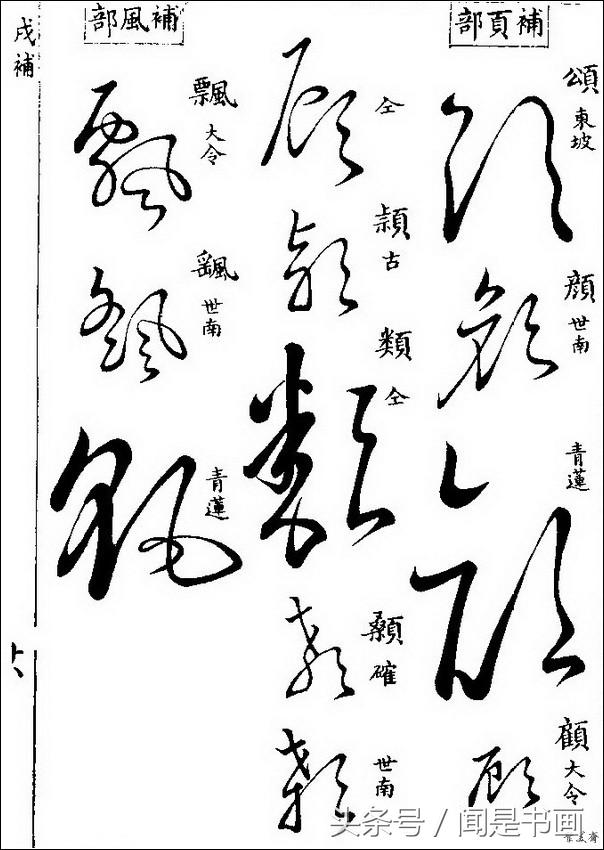 補頁部
頌 東坡
顔 世南
青蓮
顧 大令
仝
穎 古
類 仝
顙 確
世南
補風部
飄 大令
颻 世南
青蓮
戌補
头条号 / 闻是书画